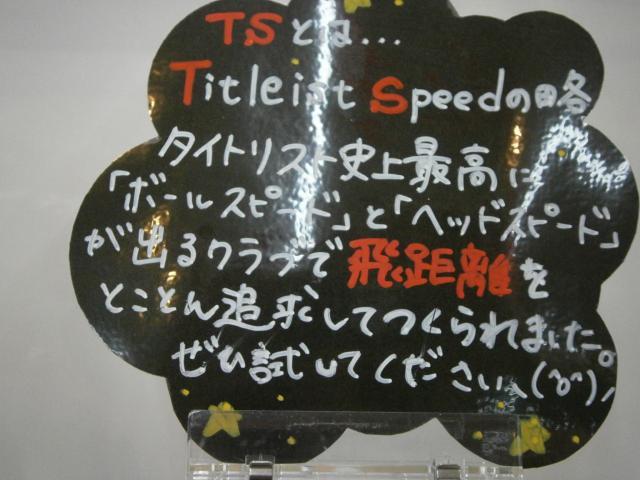 TSとは...
Titleist Speedの略
タイトリスト史上最高に
「ボールスピード」と「ヘッドスピード」
が出るクラブで飛距離を
とことん追求してつくられました。
ぜひ試してください、(^o^)ノ